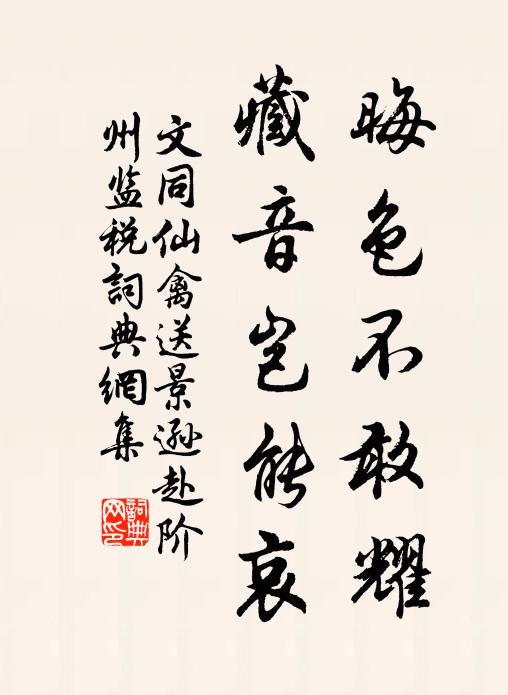 晦色不敢耀
藏音岂能哀
文同仙禽送景逊赴阶
州监税詞典網集
詞典
网印